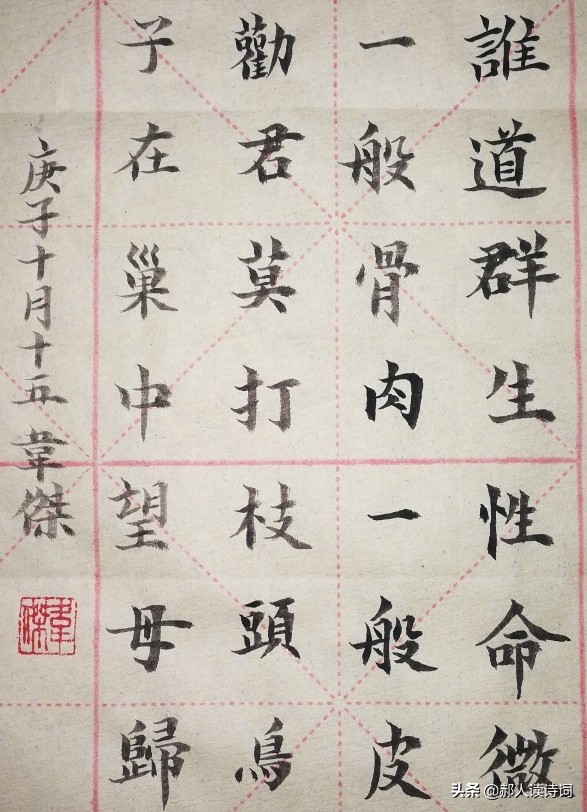 誰道群生性命微
一般骨肉一般皮
勸君莫打枝頭鳥
子在巢中望母歸
庚子十月十五韋傑
韋傑
头条@郝人读诗词